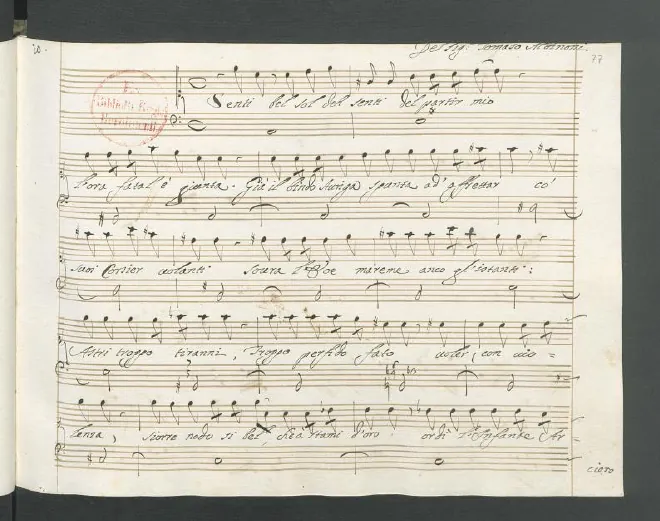 10.
Del Sig.r Tomaso Albinoni.
77
Senti bel sol deh senti del partir mio
l'ora fatal'è giunta. Già il biondo Auriga spunta ad'affrettar co'
suoi Corsier volanti. Sovra l'Eoe maremme anco gl'istanti:
Astri troppo tiranni, Troppo perfido fato voler, con vio =
lenza, sciorre nodo si bel, che a stami d'oro ordì l'Infante Ar
ciero